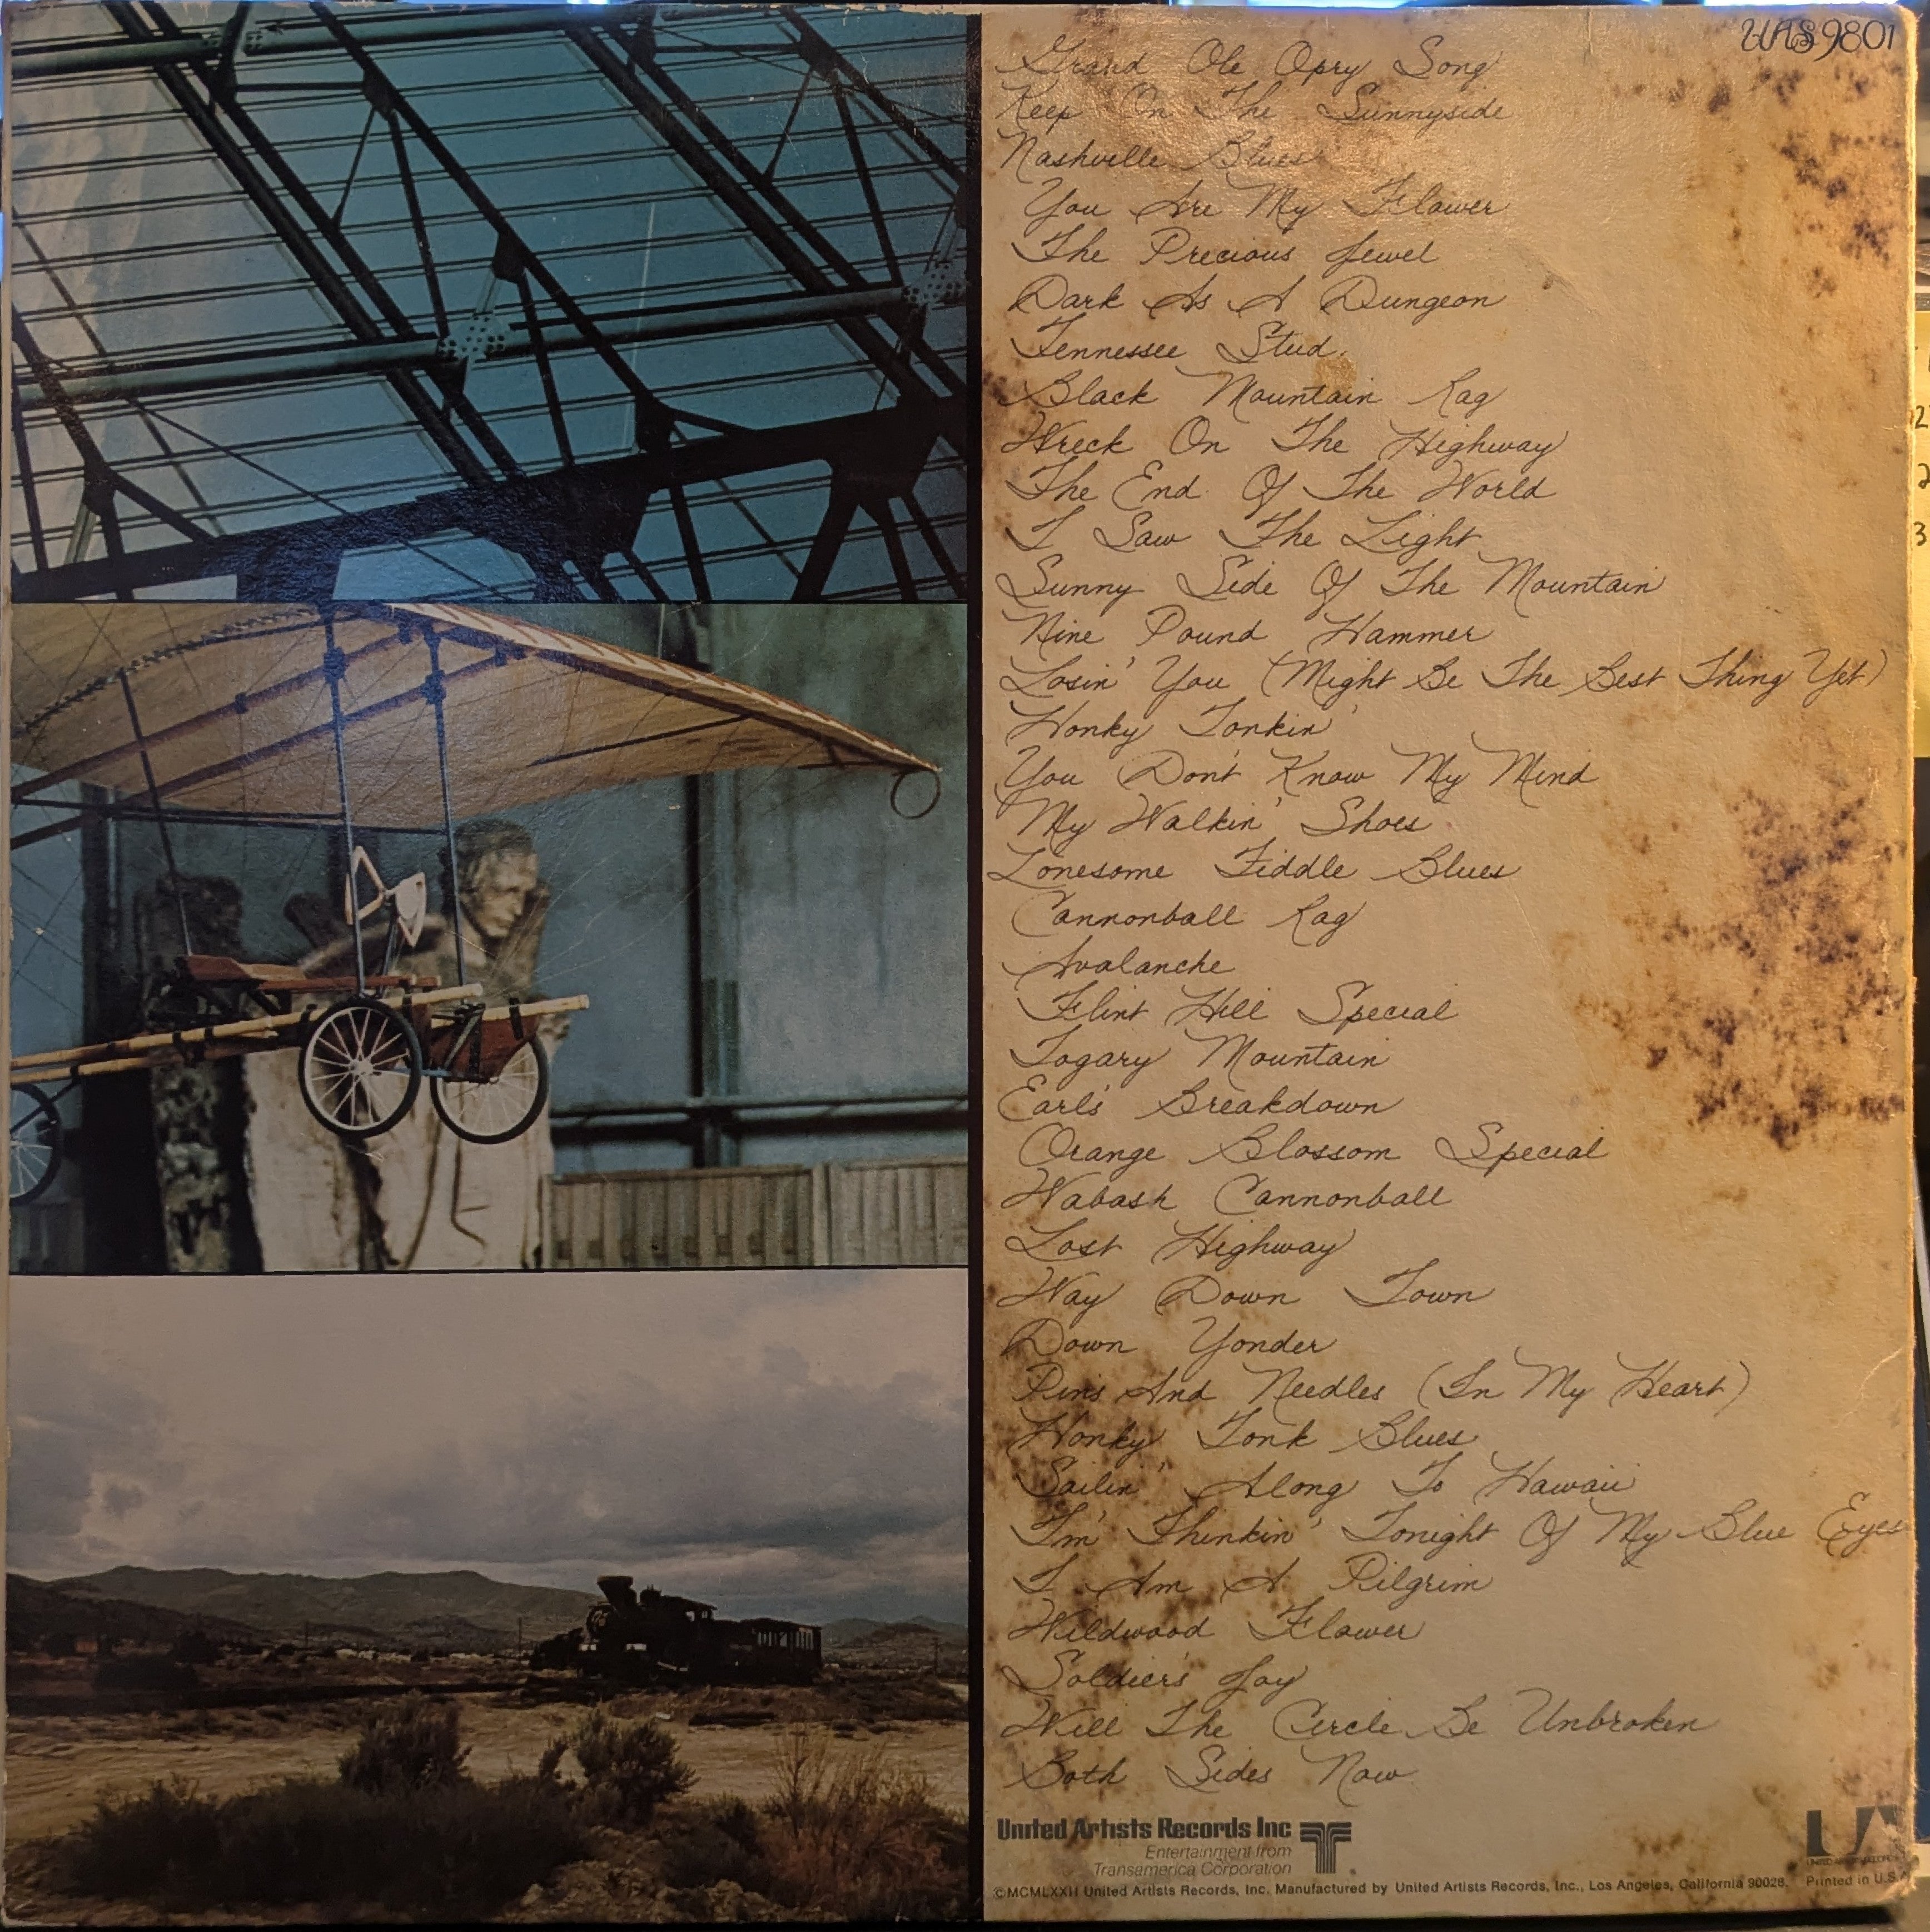 UAS9801
Grand Ole Opry Song
Keep On The Sunnyside
Nashville Blues
You Are My Flower
The Precious Jewel
Dark As A Dungeon
Tennessee Stud
Black Mountain Rag
Wreck On The Highway
The End Of The World
I Saw The Light
Sunny Side Of The Mountain
Nine Pound Hammer
Losin' You (Might Be The Best Thing Yet)
Honky Tonkin'
You Don't Know My Mind
My Walkin' Shoes
Lonesome Fiddle Blues
Cannonball Rag
Avalanche
Flint Hill Special
Togary Mountain
Earl's Breakdown
Orange Blossom Special
Wabash Cannonball
Lost Highway
Way Down Town
Down Yonder
Pins And Needles (In My Heart)
Honky Tonk Blues
Sailin' Along To Hawaii
I'm Thinkin' Tonight Of My Blue Eyes
I Am A Pilgrim
Wildwood Flower
Soldier's Joy
Will The Circle Be Unbroken
Both Sides Now
United Artists Records Inc
Entertainment from
Transamerica Corporation
UA
©MCMLXXII United Artists Records, Inc. Manufactured by United Artists Records, Inc., Los Angeles, California 90028. Printed in U.S.A
2
2
3